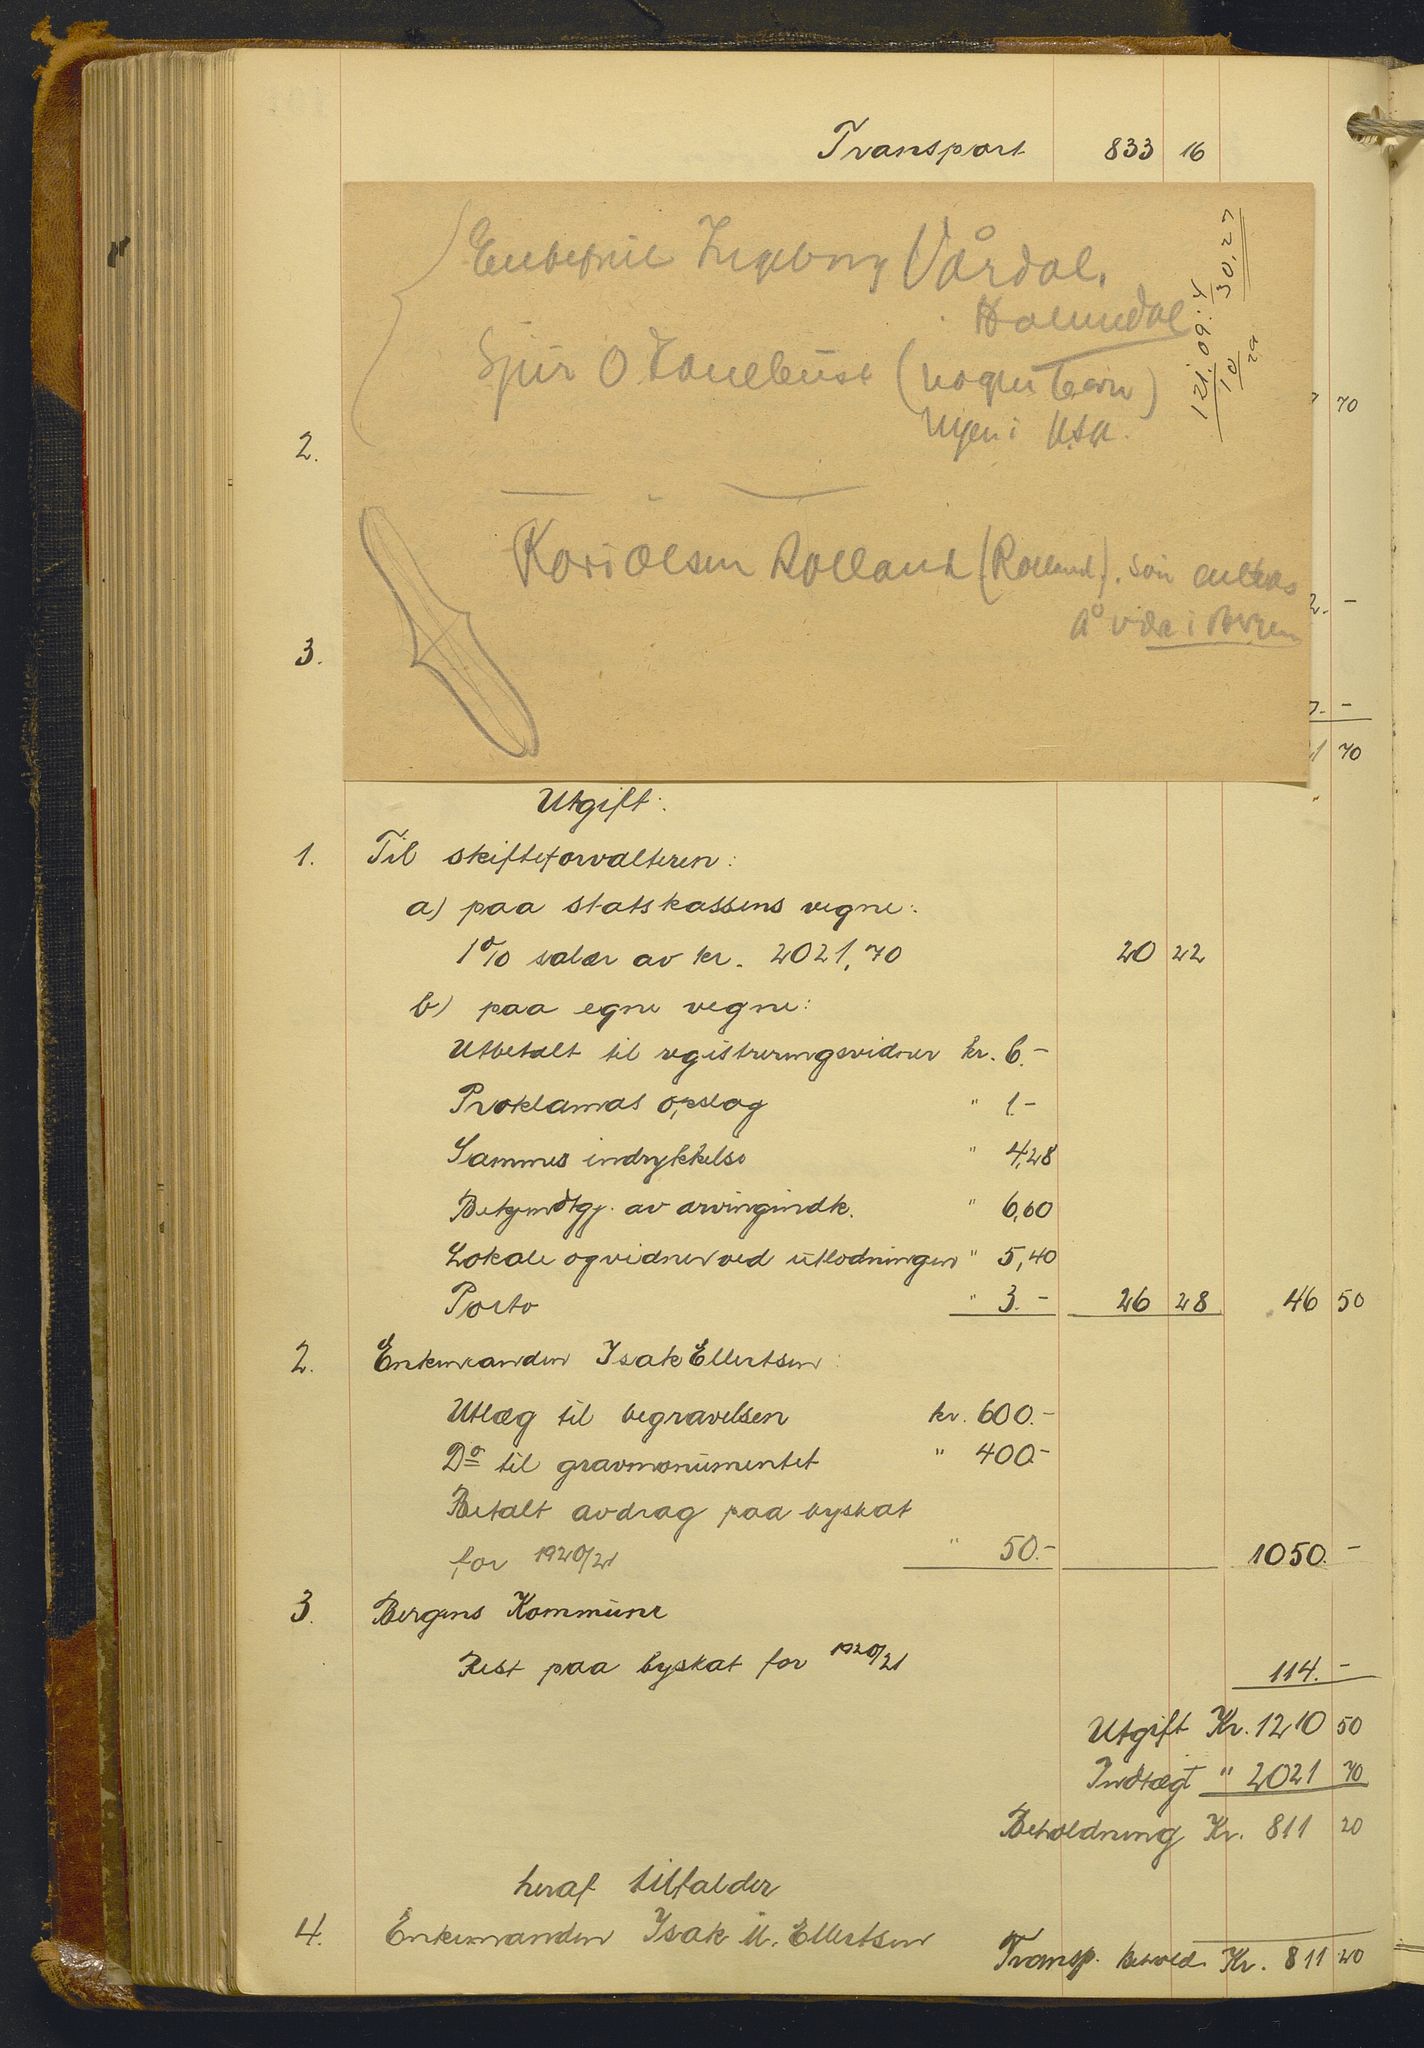 Transport 833 16
Ingeborg Vårdal,
Spür O (
i U.S.A.
121,09:4
30,27
10
29
70
2.
Kari Olsen Rolland (Rolland), som
Å i
2. -
3.
7. -
1 70
Utgift:
1. Til skifteforvalteren:
a) paa statskassens vegne:
1% salær av kr. 2021,70 20 22
b) paa egne vegne:
Utbetalt til registreringsvidner kr. 6.-
Proklamas opslag " 1.-
Sammes indrykkelse " 4,28
Bekjendtgj. av arvingindk. " 6,60
Lokale og vidner ved utlodningen " 5,40
Porto " 3.- 26 28 46 50
2. Enkemanden Isak Ellertsen:
Utlæg til begravelsen kr. 600.-
Do til gravmonumentet " 400.-
Betalt avdrag paa byskat
for 1920/21 " 50.- 1050. -
3. Bergens Kommune
Rest paa byskat for 1920/21
114. -
Utgift Kr. 1210 50
Indtægt " 2021 70
Beholdning Kr. 811 20
heraf tilfalder
4. Enkemanden Isak M. Ellertsen
Transp. behold. Kr. 811 20